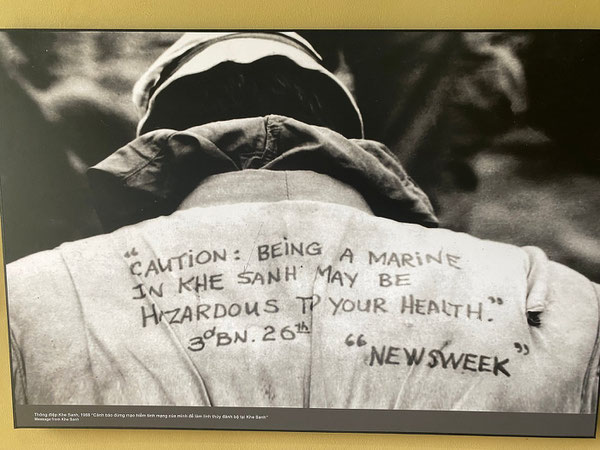 “CAUTION: BEING A MARINE
IN KHE SANH MAY BE
HAZARDOUS TO YOUR HEALTH.”
3dBN. 26th
“NEWSWEEK”
Thông điệp Khe Sanh, 1968 "Cảnh báo đừng mạo hiểm tính mạng của mình để làm lính thủy đánh bộ tại Khe Sanh"
Message from Khe Sanh